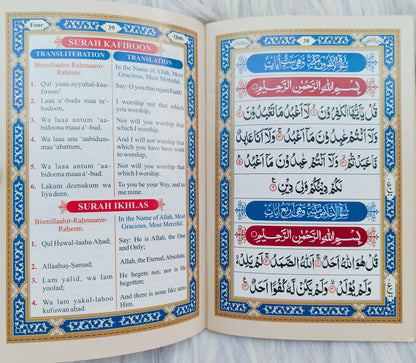 Four
39
Quls
SURAH KAFIROON
TRANSLITERATION
TRANSLATION
Bismillaahir-Raḥmaanir-
Raḥeem.
In the Name of Allah, Most
Gracious, Most Merciful.
1. Qul yaaa-ayyuhal-kaa-
firoon!
Say: O you that reject Faith!
2. Laaa a'-budu maa ta'-
budoon.
I worship not that which
you worship,
3. Wa laaa antum 'aa-
bidoona maaa a'-bud.
Nor will you worship that
which I worship.
4. Wa laaa ana 'aabidum-
maa 'abattum,
And I will not worship that
which you have been wont
to worship,
5. Wa laaa antum 'aa-
bidoona maaa a'-bud.
Nor will you worship that
which I worship.
6. Lakum deenukum wa
liya deen.
To you be your Way, and to
me mine.
SURAH IKHLAS
Bismillaahir-Raḥmaanir-
Raḥeem.
In the Name of Allah, Most
Gracious, Most Merciful.
1. Qul Huwal-laahu Aḥad;
Say: He is Allah, the One
and Only;
2. Allaahuṣ-Ṣamad;
Allah, the Eternal, Absolute;
3. Lam yalid, wa lam
yoolad;
He begets not, nor is He
begotten;
4. Wa lam yakul-lahoo
kufuwan aḥad.
And there is none like unto
Him.
38
بِسْمِ اللهِ الرَّحْمٰنِ الرَّحِيْمِ
قُلْ يٰٓاَيُّهَا الْكٰفِرُوْنَ ۝ لَآ اَعْبُدُ مَا تَعْبُدُوْنَ ۝
وَلَآ اَنْتُمْ عٰبِدُوْنَ مَآ اَعْبُدُ ۝ وَلَآ اَنَا عَابِدٌ
مَّا عَبَدْتُّمْ ۝ وَلَآ اَنْتُمْ عٰبِدُوْنَ مَآ اَعْبُدُ ۝
لَكُمْ دِيْنُكُمْ وَلِيَ دِيْنِ ۝
بِسْمِ اللهِ الرَّحْمٰنِ الرَّحِيْمِ
قُلْ هُوَ اللهُ اَحَدٌ ۝ اَللهُ الصَّمَدُ ۝ لَمْ يَلِدْ ۙ
وَلَمْ يُوْلَدْ ۝ وَلَمْ يَكُنْ لَّهٗ كُفُوًا اَحَدٌ ۝